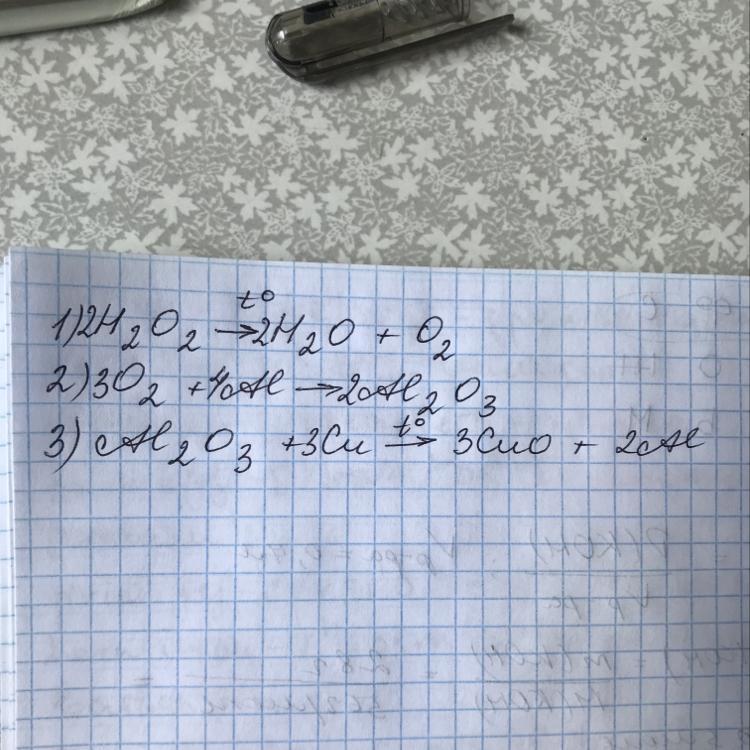 1) 2H₂O₂ →t° 2H₂O + O₂
2) 3O₂ + 4Al → 2Al₂O₃
3) Al₂O₃ + 3Cu →t° 3CuO + 2Al